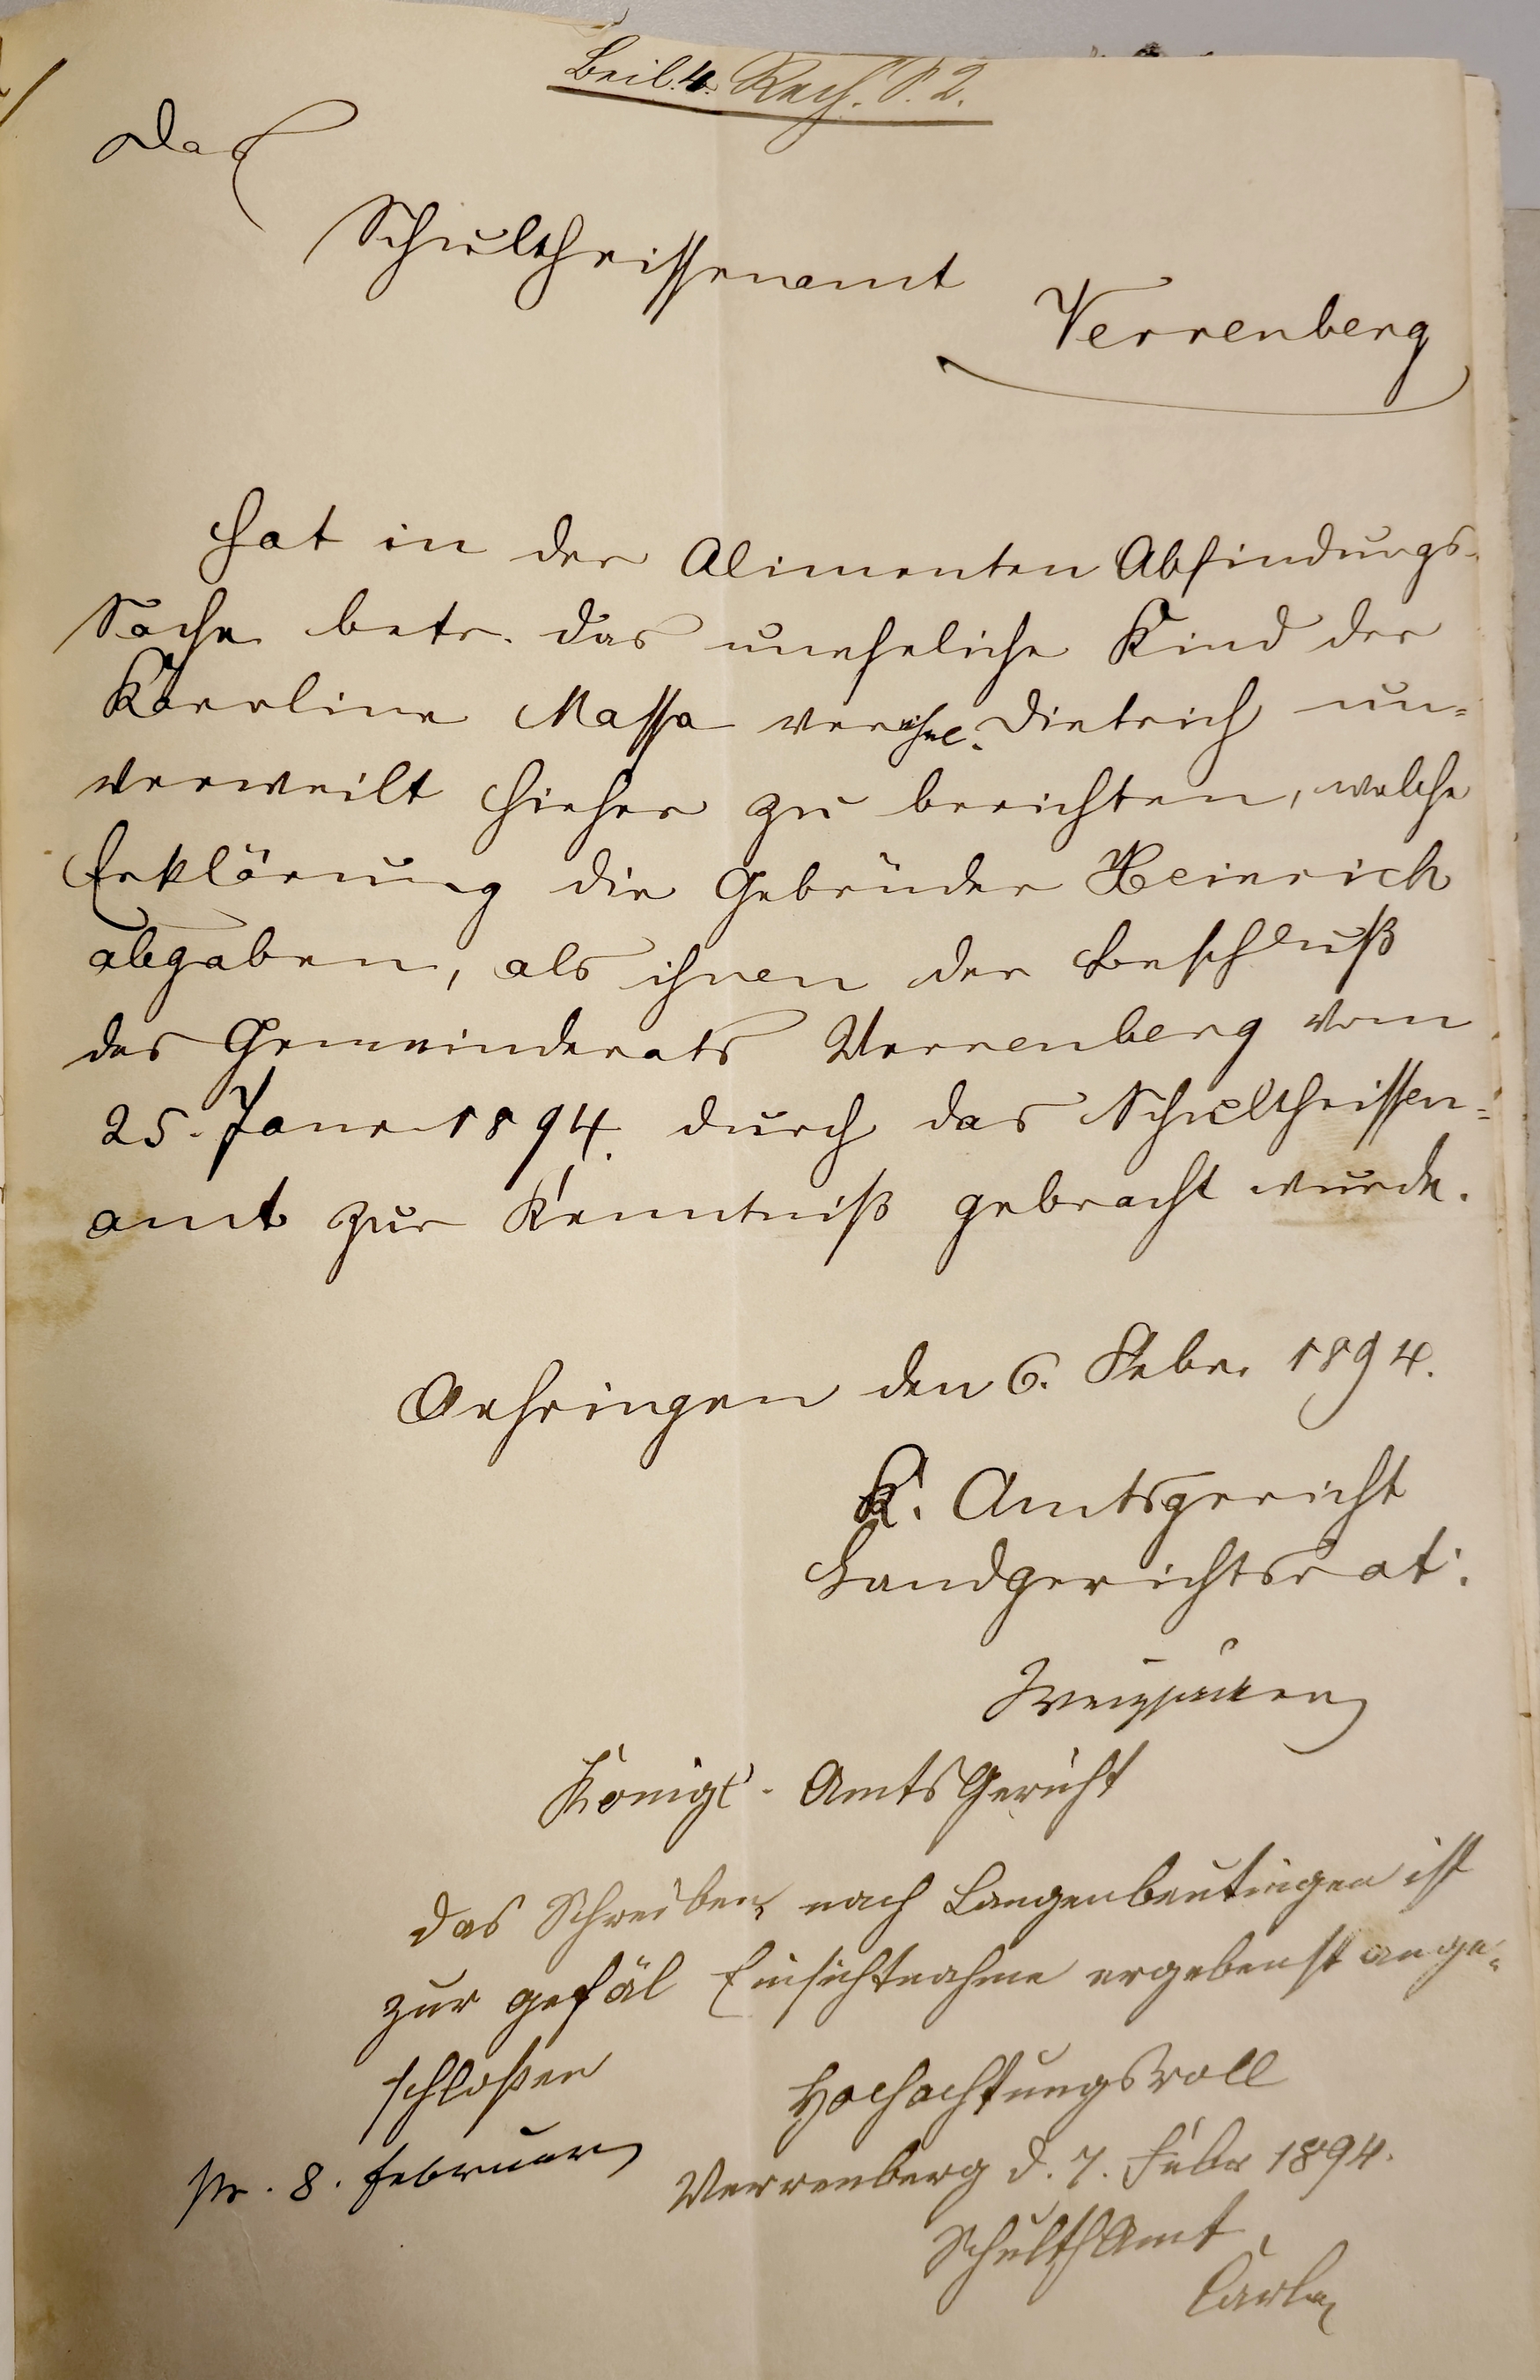 Beil. 4. Rech. S. 2.
Das
Schultheissenamt
Verrenberg
hat in der Alimenten Abfindungs-
Sache betr. das uneheliche Kind der
Karoline Massa verehel. Dietrich un-
verweilt hieher zu berichten, welche
Erklärung die Gebrüder Heinrich
abgaben, als ihnen der Beschluß
des Gemeinderats Verrenberg vom
25. Janr 1894. durch das Schultheissen-
amt zur Kenntniß gebracht wurde.
Oehringen den 6. Febr. 1894.
K. Amtsgericht
Landgerichtsrat:
Königl. Amts Gericht
das Schreiben nach Langenbeutingen ist
zur gefäl Einsichtnahme ergebenst ange-
schloßen
Hochachtungsvoll
pr. 8. Februar
Verrenberg d. 7. Febr 1894.
Schulth Amt